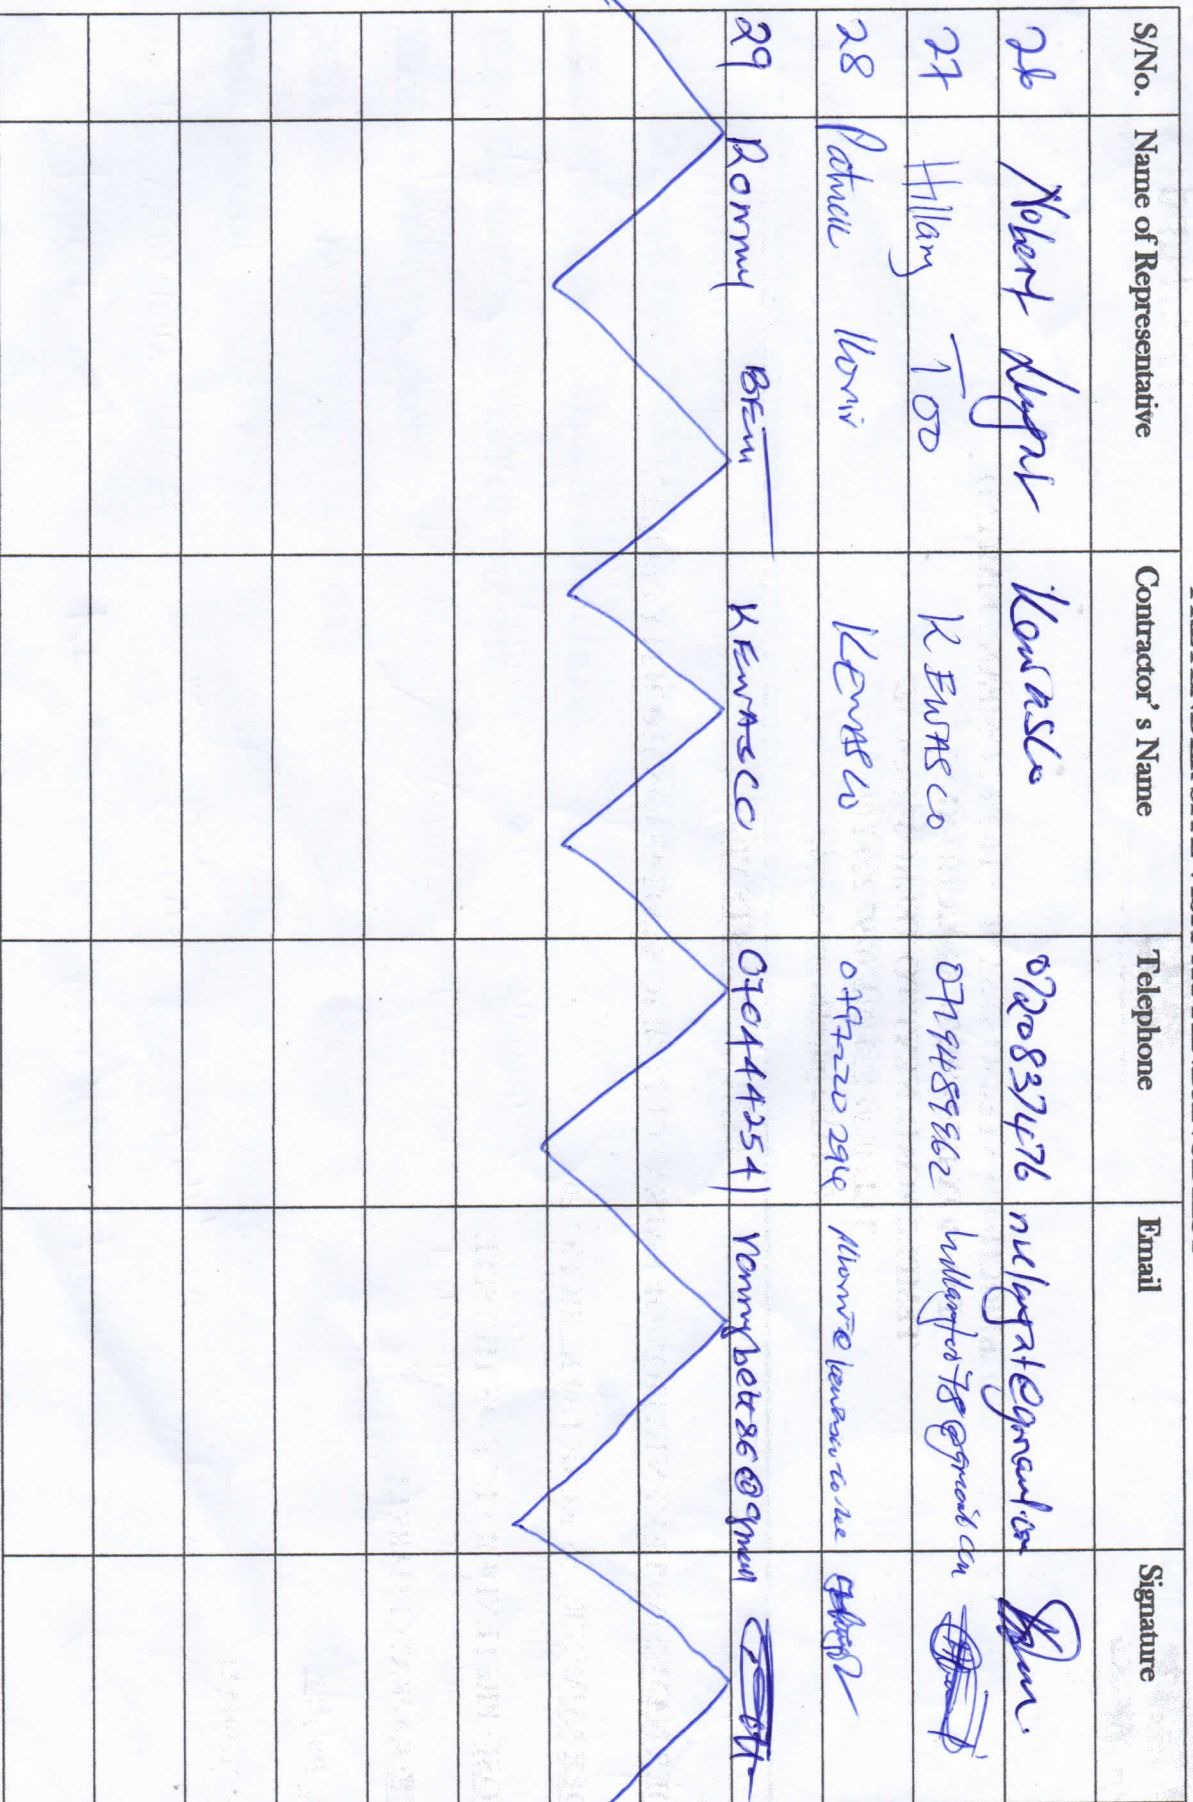 S/No. Name of Representative Contractor's Name Telephone Email Signature
26 Nobert Langat Kewasco 0720837476 nuelangat@gmail.com
27 Hillary Too KEWASCO 0719489962 hillarytoo78@gmail.com
28 Patrick KEWASCO 0797220294
29 Ronny BETT KEWASCO 0704442541 ronnybett86@gmail